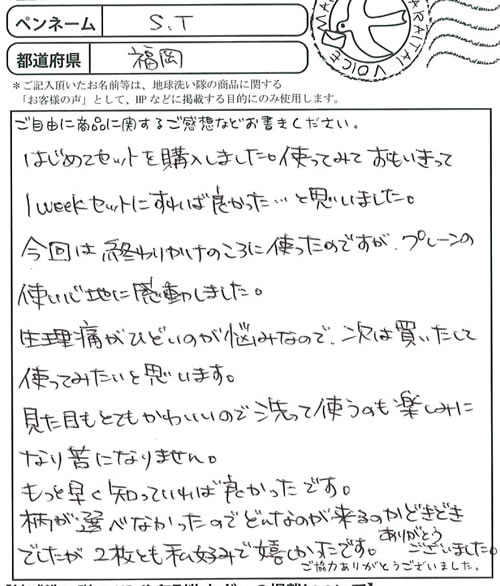 ペンネーム S.T
都道府県 福岡
＊ご記入頂いたお名前等は、地球洗い隊の商品に関する
「お客様の声」として、HPなどに掲載する目的にのみ使用します。
ご自由に商品に関するご感想などお書きください。
はじめてセットを購入しました。使ってみて おもいきって
1weekセットにすれば良かった…と思いました。
今回は終わりかけのころに使ったのですが、プレーンの
使い心地に感動しました。
生理痛がひどいのが悩みなので、次は買いたして
使ってみたいと思います。
見た目もとてもかわいいので洗って使うのも楽しみに
なり苦になりません。
もっと早く知っていれば良かったです。
柄が選べなかったのでどんなのが来るのかどきどき
でしたが2枚とも私好みで嬉しかったです。ありがとうございました。
ご協力ありがとうございました。